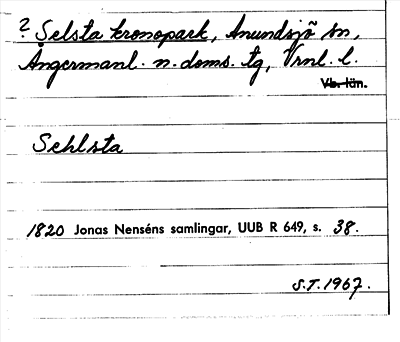 ? Selsta kronopark, Anundsjö sn,
Ångermanl. n. doms. tg, Vrnl. l.
Vb. län.
Sehlsta
1820 Jonas Nenséns samlingar, UUB R 649, s. 38.
S.T. 1967.